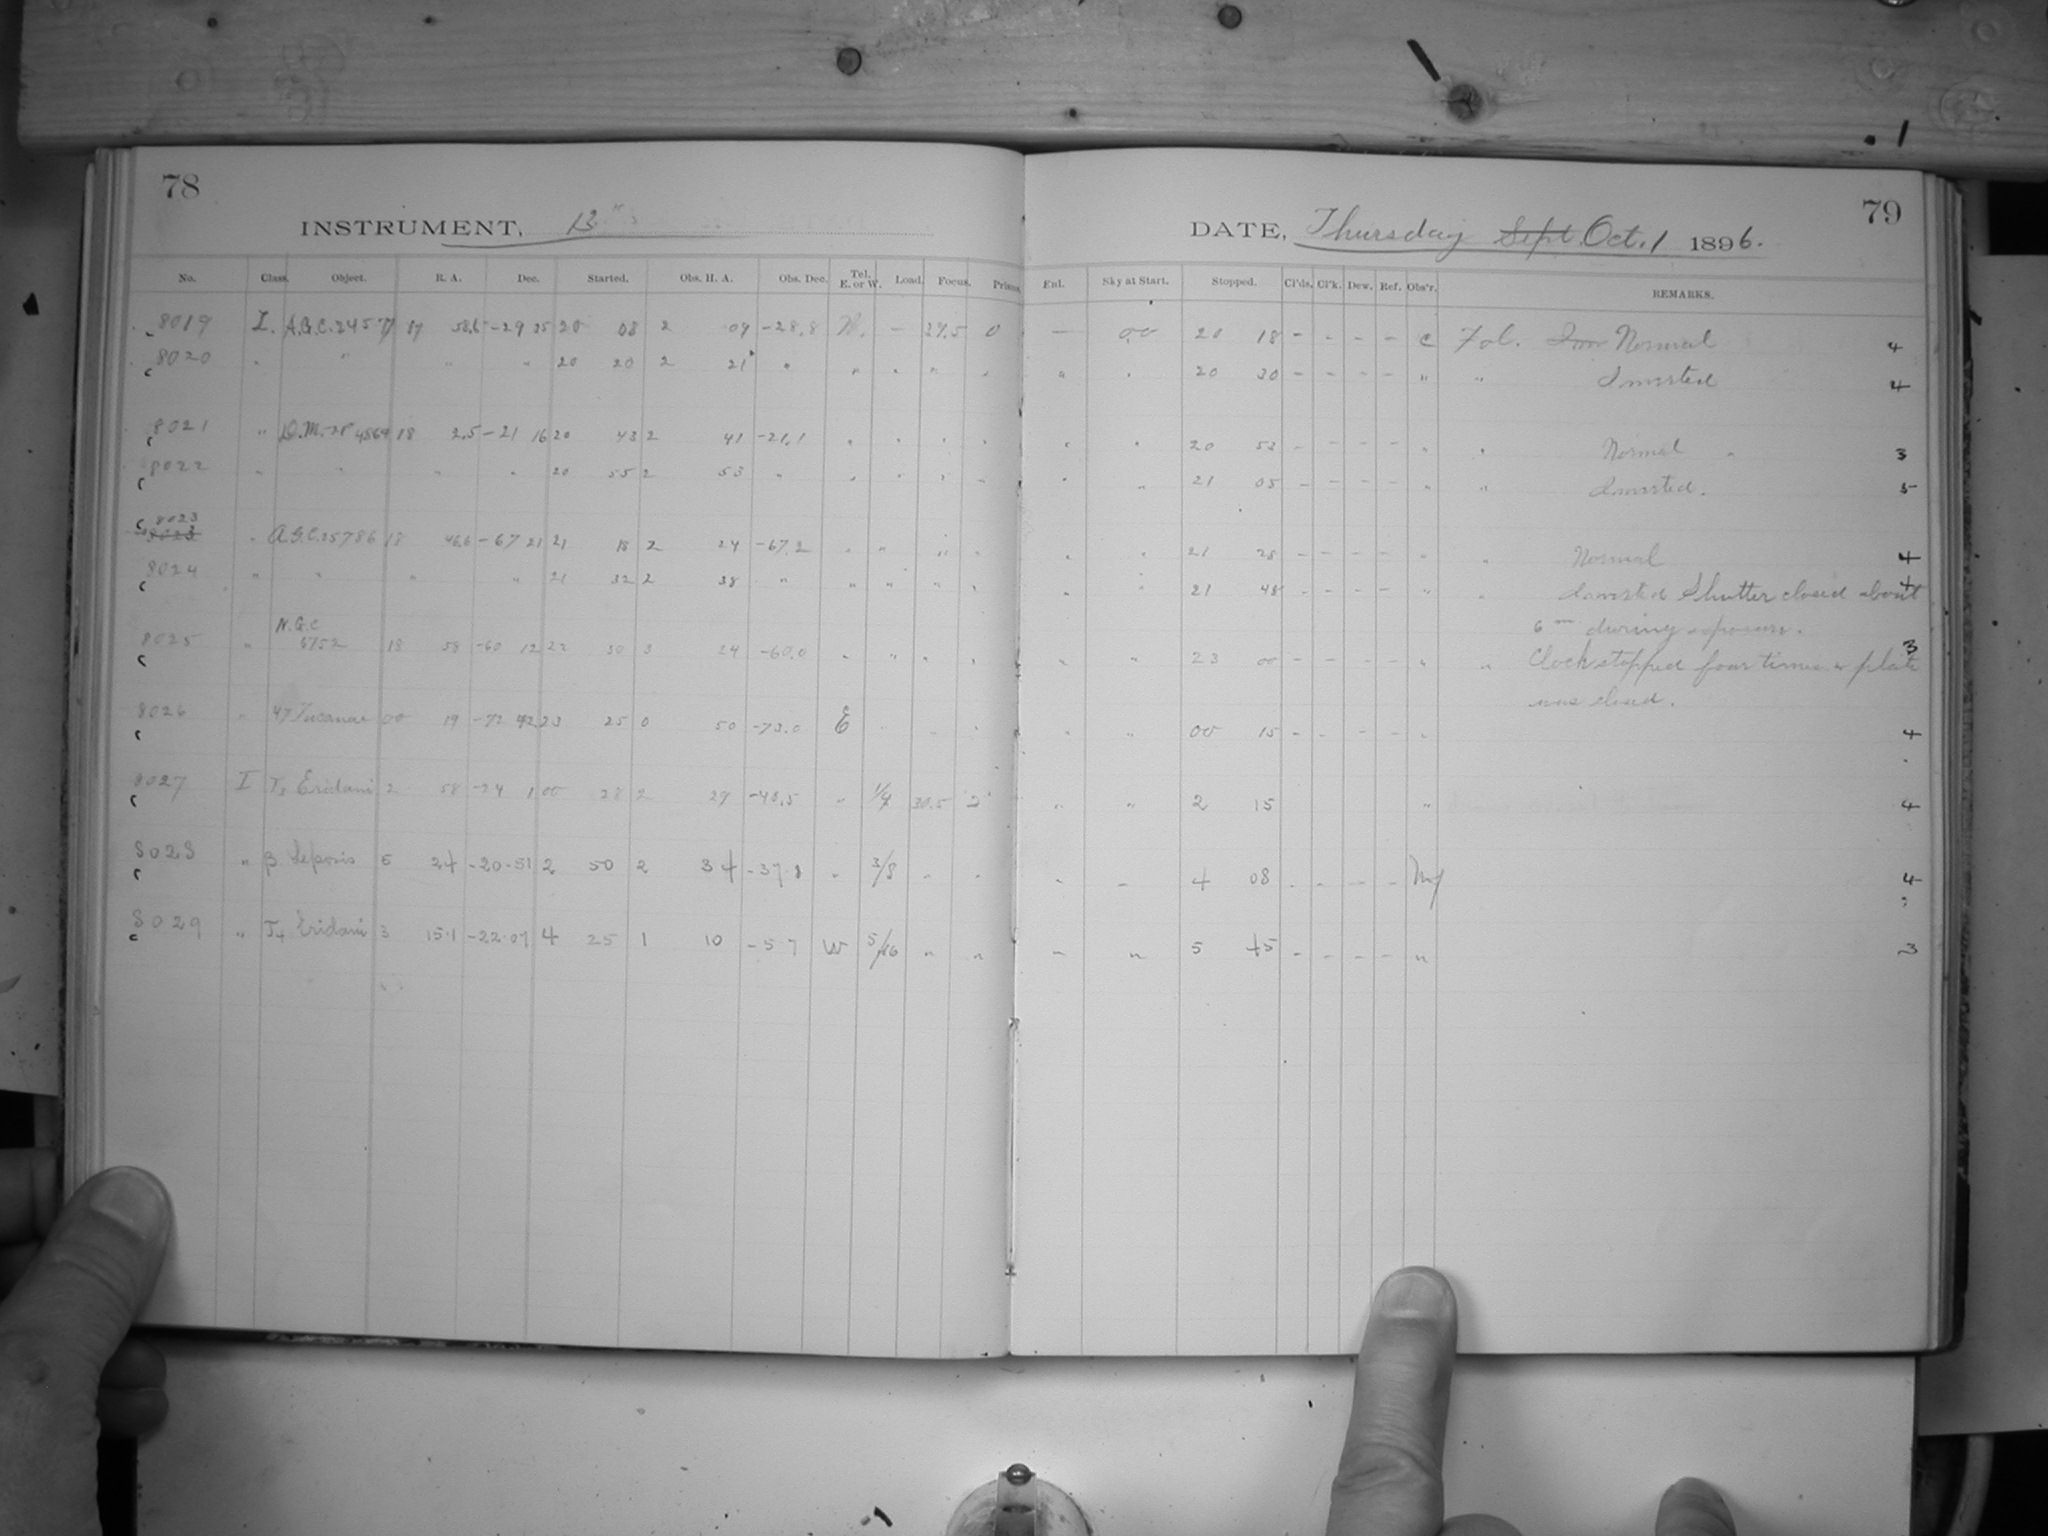 78
INSTRUMENT, 13"
No. Class. Object. R. A. Dec. Started. Obs. H. A. Obs. Dec. Tel. E. or W. Load. Focus. Prisms.
8019 I. A.G.C. 24577 17 58.6 -29 25 20 08 2 09 -28.8 W. - 29.5 0
8020 " " " " 20 20 2 21 " " " " "
8021 " D.M.-21° 4864 18 2.5 -21 16 20 43 2 41 -21.1 " " " "
8022 " " " " 20 55 2 53 " " " " "
8023
8023 " A.G.C. 25786 18 46.6 -67 21 21 18 2 24 -67.2 " " " "
8024 " " " " 21 32 2 38 " " " " "
N.G.C.
8025 " 6752 18 58 -60 12 22 30 3 24 -60.0 " " " "
8026 " 47 Tucanae 00 19 -72 42 23 25 0 50 -73.0 E " " "
8027 I τ3 Eridani 2 58 -24 1 00 28 2 29 -40.5 " 1/4 30.5 2
8028 " β Leporis 5 24 -20.51 2 50 2 34 -37.8 " 3/8 " "
8029 " τ4 Eridani 3 15.1 -22.07 4 25 1 10 -57 W 5/16 " "
79
DATE, Thursday Sept. Oct. 1 1896.
Enl. Sky at Start. Stopped. Cl'ds. Cl'k. Dew. Ref. Obs'r. REMARKS.
— 00 20 18 - - - - C Fol. Inv Normal 4
" " 20 30 - - - - " " Inverted 4
" " 20 53 - - - - " " Normal " 3
" " 21 05 - - - - " " Inverted. 5
" " 21 28 - - - - " " Normal 4
" " 21 48 - - - - " " Inverted Shutter closed about 4
6 m during exposure.
" " 23 00 - - - - " " Clock stopped four times & plate 3
was closed.
" " 00 15 - - - - " 4
" " 2 15 " 4
" - 4 08 - - - - 4
- " 5 45 - - - - " 3